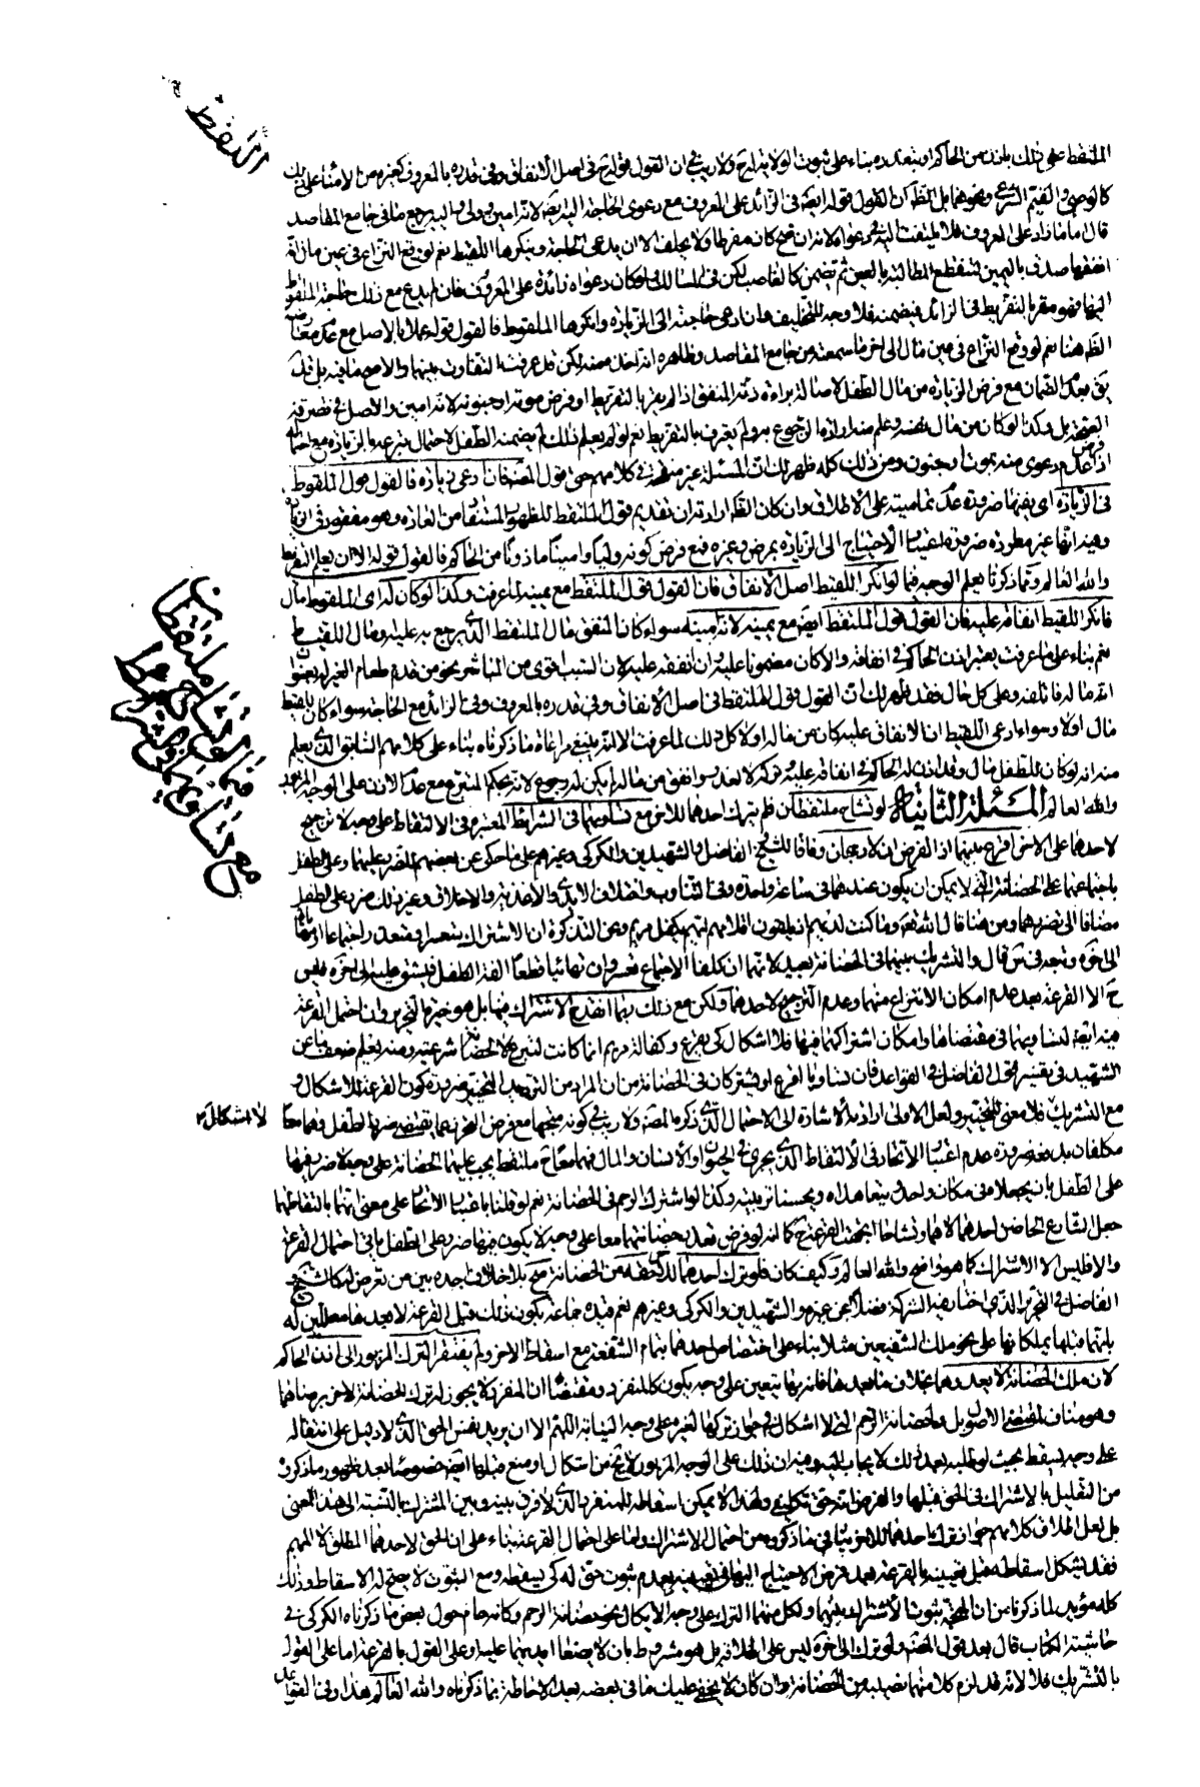 اللقيط
الملتقط على ذلك باذن من الحاكم او بتعذره بناء على ثبوت الولاية له ولا ريب في ان القول قوله في اصل الانفاق وفي قدره بالمعروف كغيره من الامناء على ذلك
كالوصي والقيم الشرعي ونحوهما بل الظ ان القول قوله ايضا في الزائد على المعروف مع دعوى الحاجة اليه لانه امين وولي واليه يرجع ما في جامع المقاصد
قال ما ما زاد على المعروف فلا يلتفت اليه في دعواه لانه ان صح كان مفرطا ولا يحلف الا ان يدعي الحاجة وينكرها اللقيط نعم لو وقع النزاع في عين مال انه
انفقها صدق باليمين لتنقطع المطالبة بالعين ثم تضمن كالغاصب لكن في المسالك لو كان دعواه زائدة على المعروف فان لم يدع مع ذلك حاجة الملقوط
اليها فهو مقر بالتفريط في الزائد فيضمنه فلا وجه للتحليف وان ادعى حاجته الى الزيادة وانكرها الملقوط فالقول قوله عملا بالاصل مع عدم معارضة
الظ هنا نعم لو وقع النزاع في عين مال الى اخر ما سمعته من جامع المقاصد وظاهره انه اخذ منه لكن قد عرفت التفاوت بينهما والاصح ما فيه بل قد
يق بعدم الضمان مع فرض الزيادة من مال الطفل لاصالة براءة ذمة المنفق اذا لم يقر بالتفريط او فرض موته او جنونه لانه امين والاصل في تصرفه
الصحة بل وكذا لو كان من مال نفسه وعلم منه ارادة الرجوع به ولم يعترف بالتفريط نعم لو لم يعلم ذلك لم يضمنه الطفل لاحتمال تبرعه بالزيادة مع احتماله
اذا فرض عدم دعوى منه بموت او جنون ومن ذلك كله ظهر لك ان المسئلة غير منقحة في كلامهم حتى قول المصنف فان ادعى زيادة فالقول قول الملقوط
في الزيادة اي بيمينه ضرورة عدم تماميته على الاطلاق وان كان الظ ارادته ان تقديم قول الملتقط للظهور المستفاد من العادة وهو مفقود في الزيادة
وفيه انها غير مطردة ضرورة اغلب الاحتياج الى الزيادة بمرض وغيره فمع فرض كونه وليا وامينا ماذونا من الحاكم فالقول قوله الا ان يعلم التفريط
والله العالم ومما ذكرنا يعلم الوجه فيما لو انكر اللقيط اصل الانفاق فان القول قول الملتقط مع يمينه لما عرفت وكذا لو كان له اي الملقوط مال
فانكر اللقيط انفاقه عليه فان القول قول الملتقط ايضا مع يمينه لانه امينه سواء كان المنفق مال الملتقط الذي يرجع به عليه او مال اللقيط
نعم بناء على ما عرفت يعتبر اذن الحاكم في انفاقه والا كان مضمونا عليه وان انفقه عليه لان السبب اقوى من المباشر نحو من قدم طعام الغير له بعنوان
انه ماله فاتلفه وعلى كل حال فقد ظهر لك ان القول قول الملتقط في اصل الانفاق وفي قدره بالمعروف وفي الزائد مع الحاجة سواء كان للقيط
مال اولا وسواء ادعى اللقيط ان الانفاق عليه كان من ماله اولا كل ذلك لما عرفت الا انه ينبغي مراعاة ما ذكرناه بناء على كلامهم السابق الذي يعلم
منه انه لو كان للطفل مال وقد اذن له الحاكم في انفاقه عليه تركه لا لعذر وانفق من ماله لم يكن له رجوع لانه بحكم المتبرع مع عدم الاذن على الوجه المزبور
والله العالم المسئلة الثانية لو تشاح ملتقطان فلم يترك احدهما للاخر مع تساويهما في الشرائط المعتبرة في الالتقاط على وجه لا ترجيح
لاحدهما على الاخر اقرع بينهما اذ الفرض ان لا رجحان وفاقا للشيخ والفاضل والشهيدين والكركي وغيرهم على ما حكي عن بعضهم للضرر عليهما وعلى الطفل
باجتماعهما على الحضانة التي لا يمكن ان يكون عندهما في ساعة واحدة وفي التناوب واختلاف الايدي والاغذية والاخلاق وغير ذلك ضرر على الطفل
مضافا الى تضررهما ومن هنا قال الله تعه وما كنت لديهم اذ يلقون اقلامهم ايهم يكفل مريم وعن التذكرة ان الاشتراك يتعسر او يتعذر اجتماعا او مهاياة
الى اخره ونحوه في مس قال والتشريك بينهما في الحضانة بعيد لانهما ان كلفا الاجتماع تعسر وان تهائيا قطعا الفة الطفل فيشق عليه الى اخره فليس
ح الا القرعة بعد عدم امكان الانتزاع منهما وعدم الترجيح لاحدهما ولكن مع ذلك ربما انقدح الاشتراك بينهما بل هو خيرة التحرير وان احتمل القرعة
فيه ايضا لتساويهما في مقتضاها وامكان اشتراكهما فيها فلا اشكال كي يقرع وكفالة مريم انما كانت لتبرع لا لحضانة شرعية ومنه يعلم ضعف ما عن
الشهيد في تفسير قول الفاضل في القواعد فان تساويا اقرع او يشتركان في الحضانة من ان المراد من الترديد التخيير ضرورة كون القرعة للاشكال و
لا اشكال
مع التشريك فلا معنى للتخيير ولعل الاولى ارادة الاشارة الى الاحتمال الذي ذكره المصنف ولا ريب في كونه متجها مع فرض التحرز عما يقتضي ضررا لطفل وهما معا
مكلفان بدفعه ضرورة عدم اعتبار الاتحاد في الالتقاط الذي يجري في الحيوان والانسان والمال فهما معا ح ملتقط يجب عليهما الحضانة على وجه لا ضرر فيها
على الطفل بان يجعلاه في مكان واحد ويتعاهداه ويحسنا تربيته وكذا لو اشترك الرحم في الحضانة نعم لو قلنا باعتبار الاتحاد على معنى انهما بالتقاطهما
جعل الشارع الحاضن احدهما لا هما وتشاحا اتجهت القرعة ح كما انه لو فرض تعذر حضانتهما معا على وجه لا يكون فيها ضرر على الطفل ياتي احتمال القرعة
والا فليس الا الاشتراك كما هو واضح والله العالم وكيف كان فلو ترك احدهما للاخر حقه من الحضانة صح بلا خلاف اجده بين من تعرض له كالشيخ و
الفاضل في التحرير الذي اختار فيه الشركة فضلا عن غيره والشهيدين والكركي وغيرهم نعم قيده جماعة بكون ذلك قبل القرعة لا بعدها معللين له
بانهما قبلها يملكانها على نحو ملك الشفيعين مثلا بناء على اختصاص احدهما بتمام الشفعة مع اسقاط الاخر ولم يفتقر الترك المزبور الى اذن الحاكم
لان ملك الحضانة لا يعدوهما بخلاف ما بعدها فانه بها يتعين على وجه يكون كالمنفرد ومقتضاه ان المنفرد لا يجوز له ترك الحضانة لاخر برضاهما
وهو مناف لمقتضى الاصول بل ولحضانة الرحم التي لا اشكال في جواز تركها لغيره على وجه النيابة اللهم الا ان يريد نفس الحق الذي لا دليل على انتقاله
على وجه يسقط بحيث لو طلبه بعد ذلك لا يجاب اليه وفيه ان ذلك على الوجه المزبور لا يخ من اشكال او منع قبلها ايضا خصوصا بعد ظهور ما ذكروه
من التعليل بالاشتراك في الحق قبلها والفرض انه حق تكليفي ولهذا لا يمكن اسقاطه للمنفرد الذي لا فرق بينه وبين المشترك بالنسبة الى هذا المعنى
بل لعل اطلاق كلامهم جواز ترك احدهما للاخر ينافي ما ذكروه من احتمال الاشتراك واما على احتمال القرعة بناء على ان الحق لاحدهما المطلق لا المبهم
فقد يشكل اسقاطه قبل تعيينه بالقرعة بعد فرض الاحتياج اليها في تعيينه بعدم ثبوت حق له كي يسقطه ومع الثبوت لا يصح له الاسقاط وذلك
كله مؤيد لما ذكرنا من ان المتجه ثبوت الاشتراك بينهما ولكل منهما الترك على وجه الايكال نحو حضانة الرحم وكانه حام حول بعض ما ذكرناه الكركي في
حاشية الكتاب قال بعد قول المصنف ولو ترك الى اخره ليس على اطلاقه بل هو مشروط بان لا يضعا ايديهما عليه وعلى القول بالقرعة اما على القول
بالتشريك فلا لانه قد لزم كلا منهما نصيبه من الحضانة وان كان لا يخفى عليك ما في بعضه بعد الاحاطة بما ذكرناه والله العالم هذا وفي القواعد
فيما لو تشاح ملتقطان
مع تساويهما في الشرائط